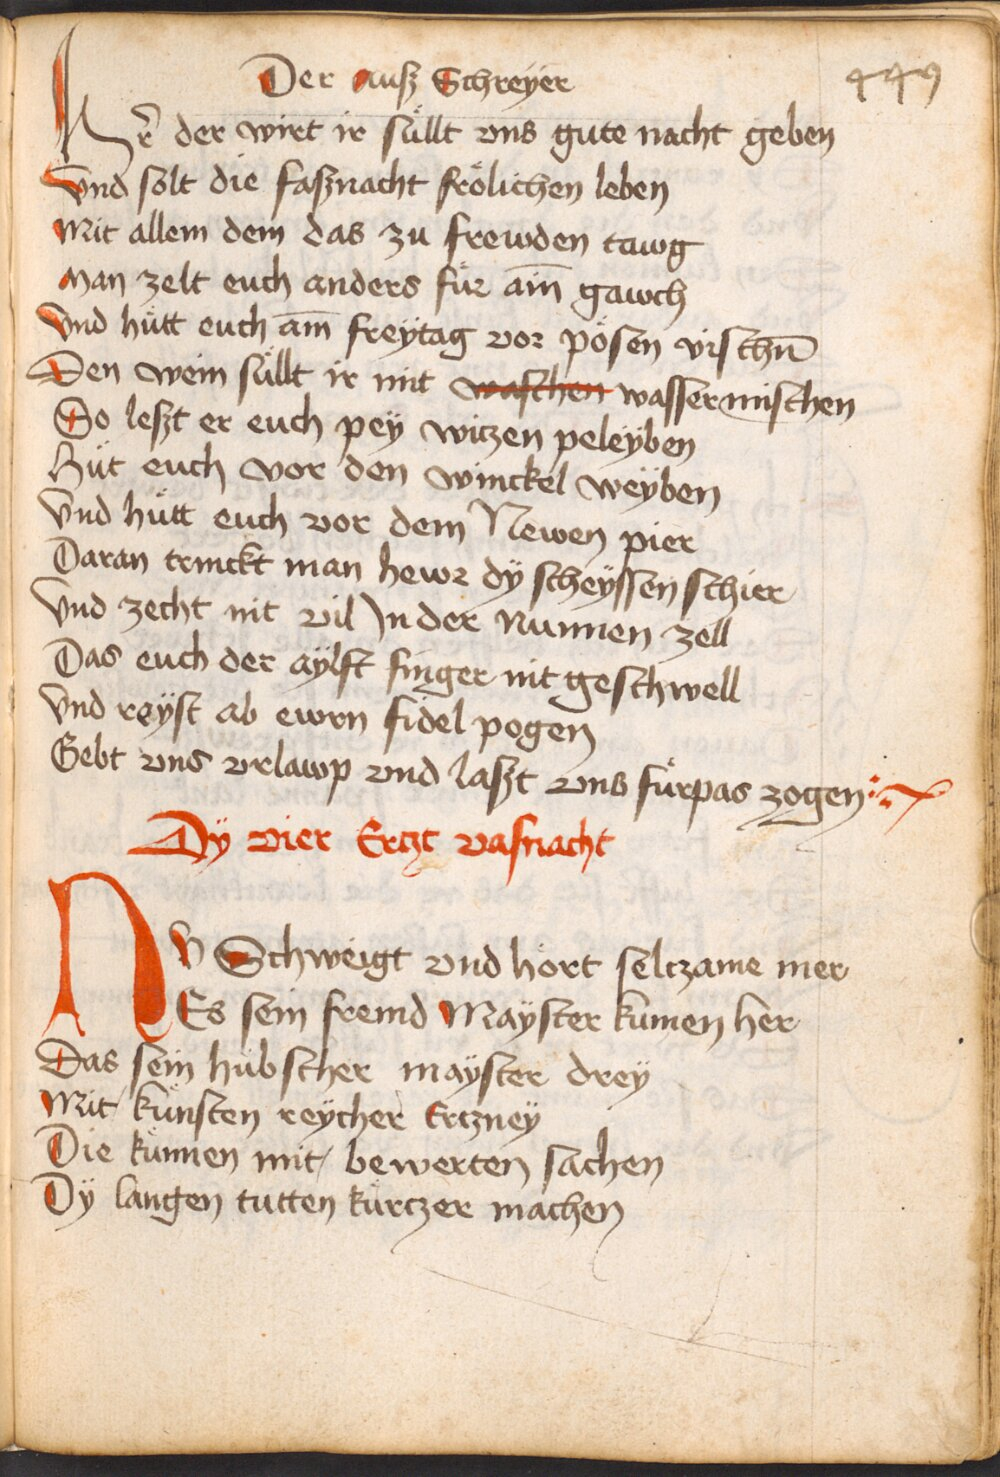 Der Auß Schreyer
449
Hr̃ der wirt ir süllt vns gute nacht geben
Vnd solt die faßnacht frölichen leben
Mit allem dem das zu frewden tawg
Man zelt euch anders für aim̄ gawch
Vnd hütt euch am̄ freytag vor pösen vischn̄
Den wein süllt ir mit waschen wasser mischen
So leßt er euch pey witzen peleyben
Hüt euch vor den winckel weyben
Vnd hütt euch vor dem Newen pier
Daran trinckt man hewr dy scheyssen schier
Vnd zecht nit vil In der Nunnen zell
Das euch der aylft finger nit geschwell
Vnd reyst ab ewrn fidel pogen
Gebt vns vrlawp vnd laßt vns fürpas zogen
Dy vier Erczt vasnacht
NV Schweigt vnd hört selczame mer
Es sein fremd Mayster kumen her
Das sein hübscher mayster drey
Mit künsten reycher Erczney
Die künnen mit bewerten sachen
Dy langen tutten kürczer machen